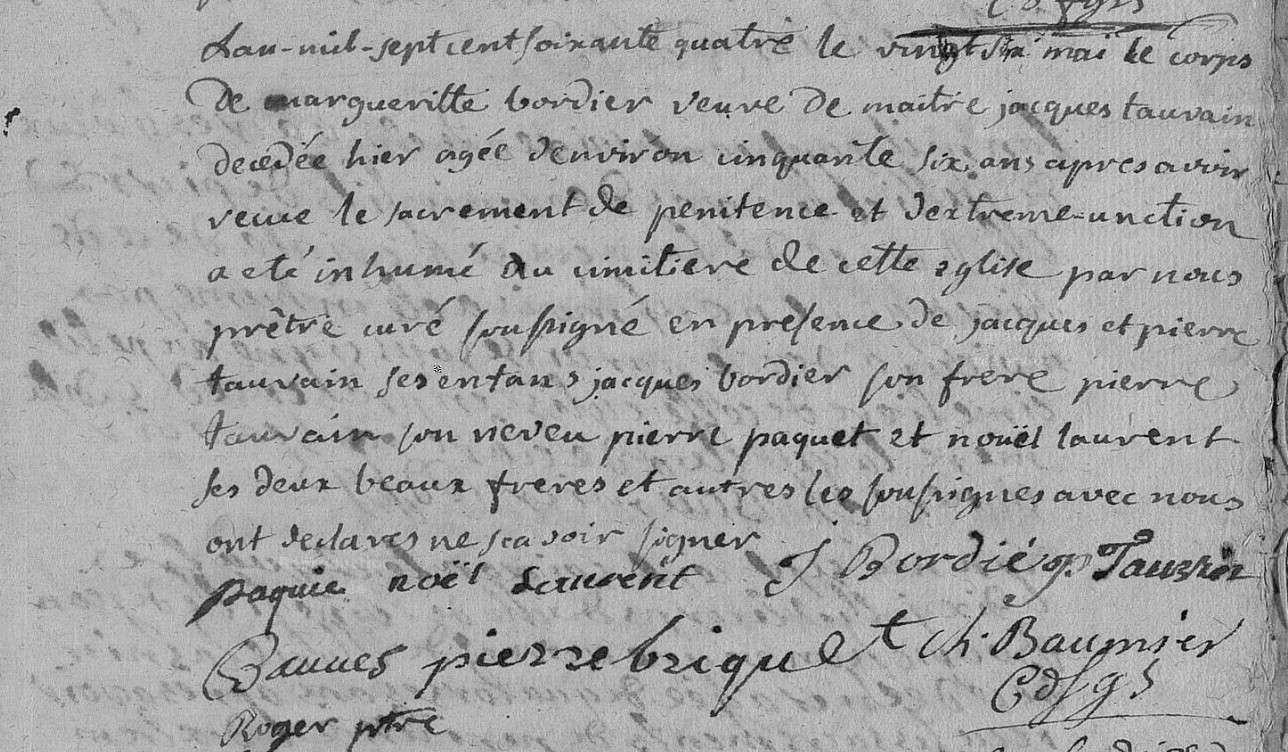 Lan-mil-sept cent soixante quatre le vingt six mai le corps
De margueritte bordier veuve de maitre jacques tauvain
decedée hier agée denviron cinquante six ans apres avoir
recue le sacrement de penitence et dextreme-unction
a eté inhumé au cimitiere de cette eglise par nous
prêtre curé soussigné en presence de jacques et pierre
tauvain ses enfans jacques bordier son frere pierre
tauvain son neveu pierre paquet et nouël laurent
ses deux beaux freres et autres les soussignes avec nous
ont declares ne scavoir signer
paquie noël Laurent J Bordié p Tauvin
Bauves pierre briquet ch. Baumier
Cdsgs
Roger ptre